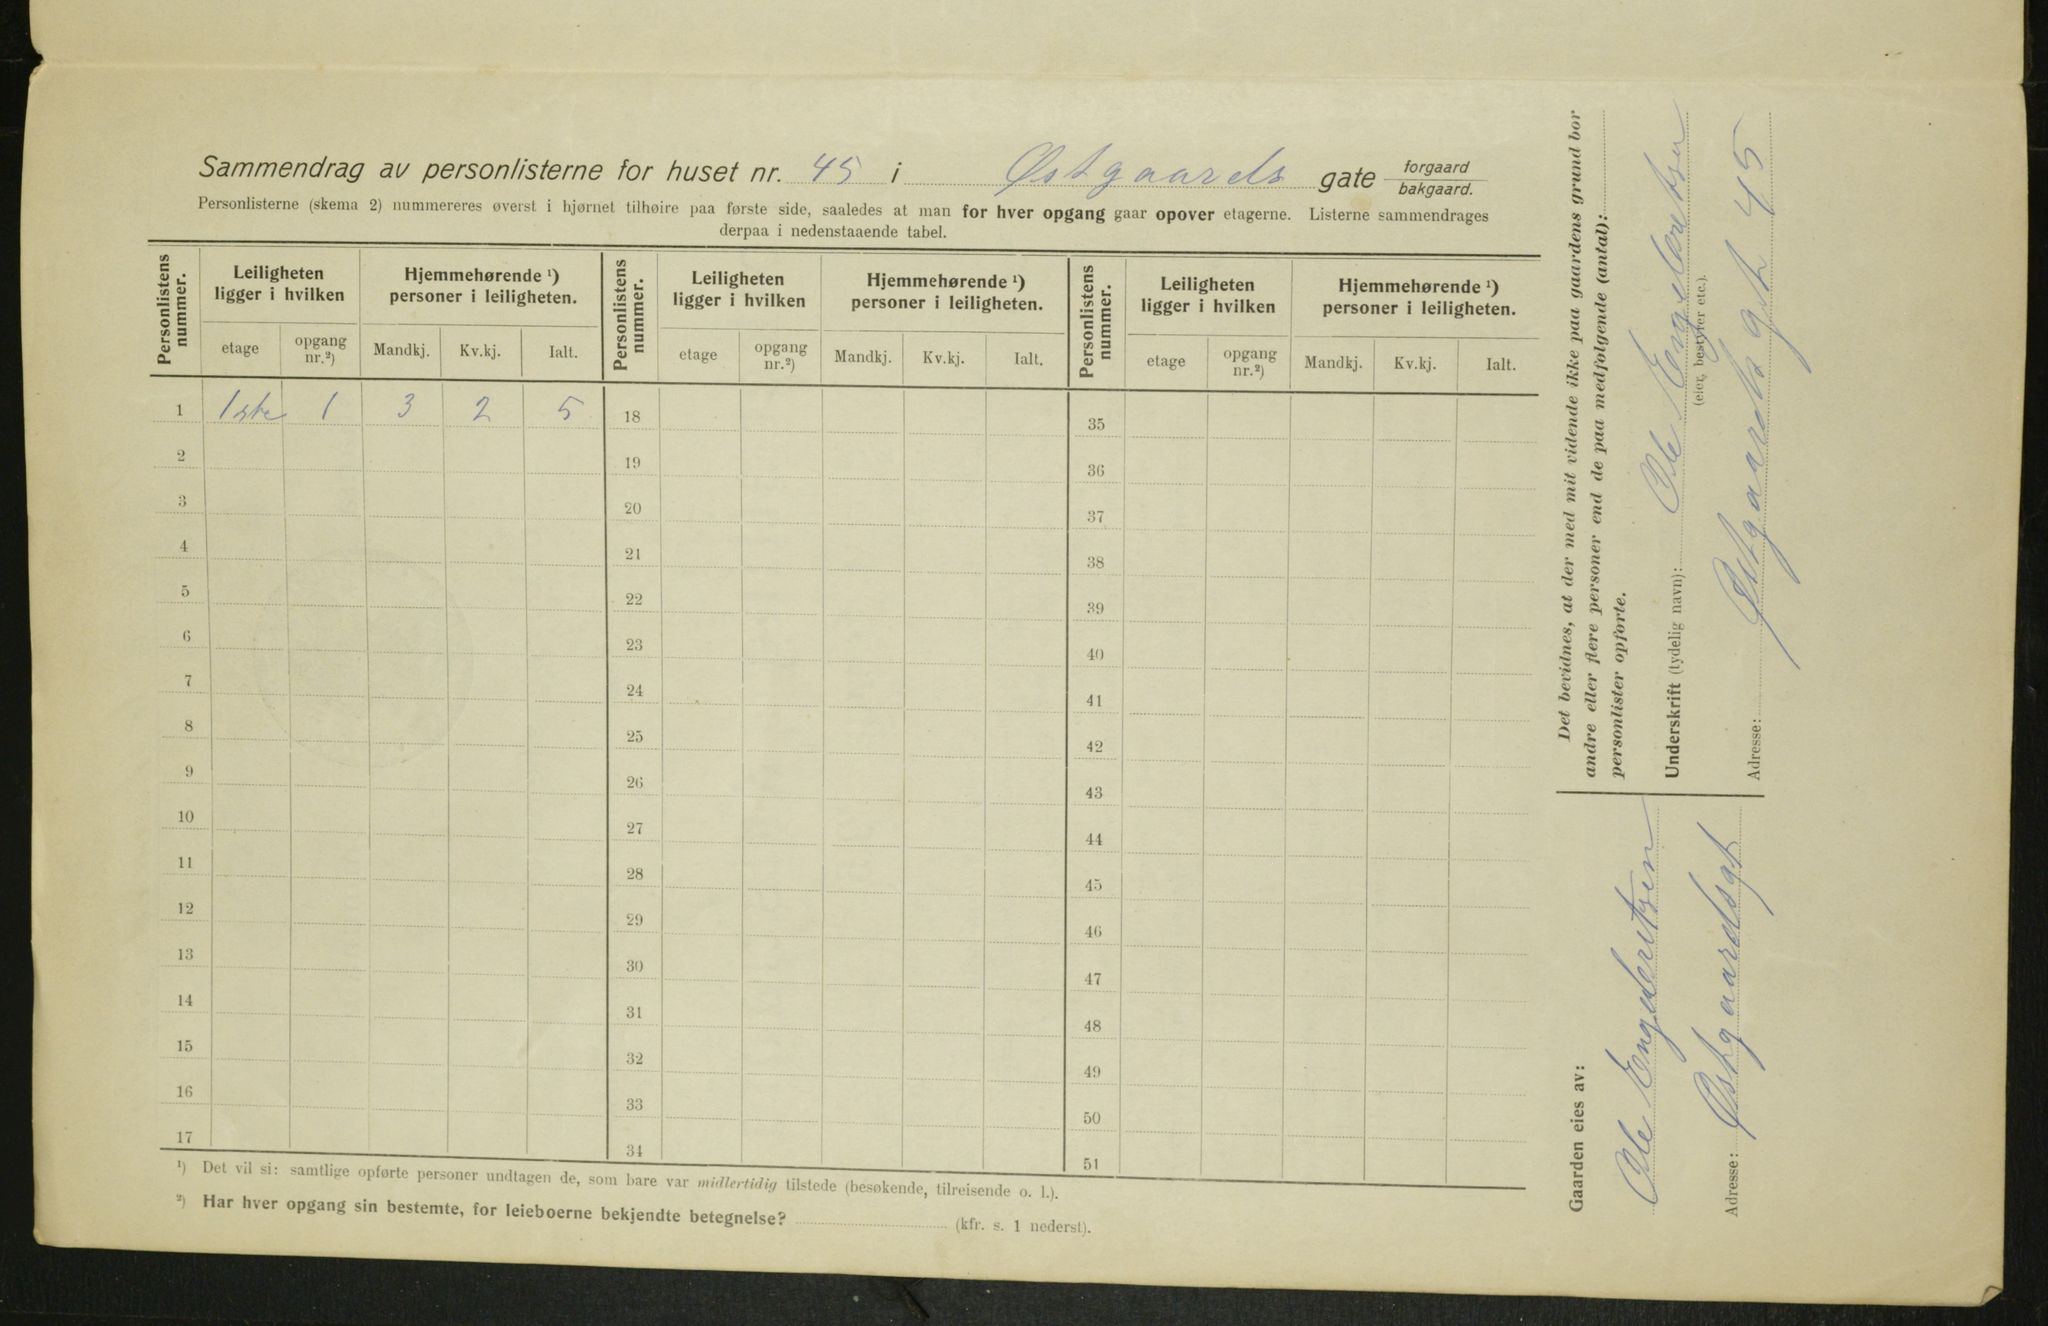 Sammendrag av personlisterne for huset nr. 45 i Østgaards gate forgaard
bakgaard.
Personlisterne (skema 2) nummereres øverst i hjørnet tilhøire paa første side, saaledes at man for hver opgang gaar opover etagerne. Listerne sammendrages
derpaa i nedenstaaende tabel.
Personlistens nummer. Leiligheten ligger i hvilken Hjemmehørende ¹) personer i leiligheten. Personlistens nummer. Leiligheten ligger i hvilken Hjemmehørende ¹) personer i leiligheten. Personlistens nummer. Leiligheten ligger i hvilken Hjemmehørende ¹) personer i leiligheten.
etage opgang nr.²) Mandkj. Kv.kj. Ialt. etage opgang nr.²) Mandkj. Kv.kj. Ialt. etage opgang nr.²) Mandkj. Kv.kj. Ialt.
1 1ste 1 3 2 5 18 35
2 19 36
3 20 37
4 21 38
5 22 39
6 23 40
7 24 41
8 25 42
9 26 43
10 27 44
11 28 45
12 29 46
13 30 47
14 31 48
15 32 49
16 33 50
17 34 51
¹) Det vil si: samtlige opførte personer undtagen de, som bare var midlertidig tilstede (besøkende, tilreisende o. l.).
²) Har hver opgang sin bestemte, for leieboerne bekjendte betegnelse? (kfr. s. 1 nederst).
Det bevidnes, at der med mit vidende ikke paa gaardens grund bor
andre eller flere personer end de paa medfølgende (antal):
personlister opførte.
Underskrift (tydelig navn): Ole Engebretsen
(eier, bestyrer etc.).
Adresse: Østgaards gt 45
Gaarden eies av:
Ole Engebretsen
Adresse: Østgaardsgt